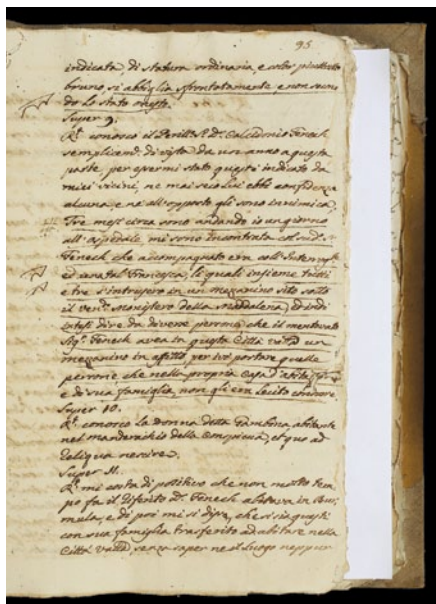 95
indicata, di statura ordinaria, e color piuttosto
bruno, si abbiglia sfrontatamente, e non secon
do lo stato onesto.
Super 9.
Rt conosco il Calcidonio Fenech
semplicemt di vista da un anno a questa
parte, per esser mi stato questi indicato da
miei vicini, ne mai seco lui ebbi confidenza
alcuna, e ne all'opposto gli sono inimica.
Tre mesi circa sono andando io un giorno
all'ospedale, mi sono incontrata col sudo
Fenech che accompagnato era coll'
ed una tal Francesca, li quali insieme tutti
e tre s'intrusero in un mezzanino sito sotto
il Monistero della Maddalena, ed indi
intesi dire da diverse persone, che il mentovato
Sigr Fenech avea in questa Città un
mezzanino in affitto, per ivi portare quelle
persone, che nella propria Casa d'
e di sua famiglia, non gli era lecito condurre.
Super 10.
Rt conosco la donna detta Gambina, abitante
nel della Cospicua, et quo ad
reliqua nescire.
Super 11.
Rt mi costa di positivo che non molto tem
po fa il riferito Dr Fenech abitava in Bur
mula, e di poi mi si disse, che si sia questi
con sua famiglia trasferito ad abitare nella
Città senza saper ne il luogo neppur